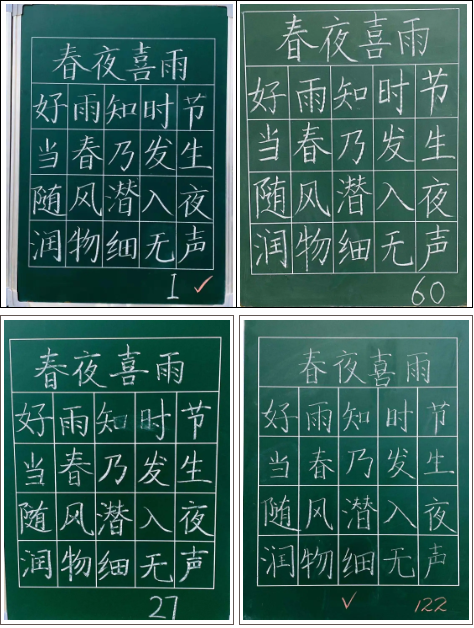 春夜喜雨
好雨知时节
当春乃发生
随风潜入夜
润物细无声
1
春夜喜雨
好雨知时节
当春乃发生
随风潜入夜
润物细无声
60
春夜喜雨
好雨知时节
当春乃发生
随风潜入夜
润物细无声
27
春夜喜雨
好雨知时节
当春乃发生
随风潜入夜
润物细无声
122